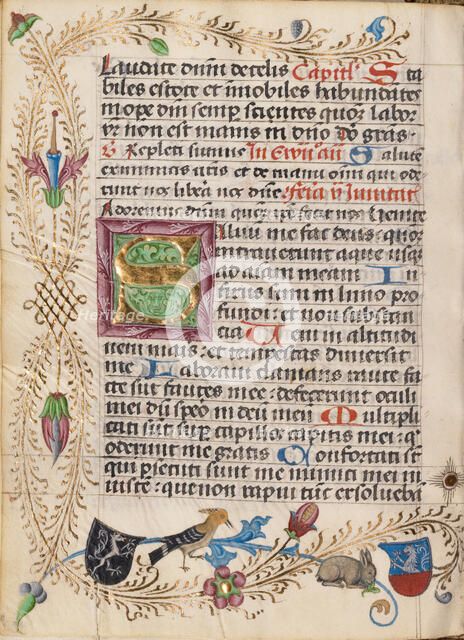 Laudate dnm de celis Capitlm Sta
biles estote et inmobiles habundates
in ope dni semp scientes quor labor
vr non est inanis in dno Do gras
V Repleti sumus In Ewn an Salute
ex inimicis nris et de manu oim qui ode
runt nos libera nos dne feria v Invitat
Adoremus dnm qm ipse fecit nos Venite
Salvu me fac deus : quor
intraverunt aque usq
ad aiam meam In
fixus sum in limo pro
fundi : et non substan
cia Veni in altitudi
nem maris : et tempestas dimersit
me Laboravi clamans rauce fac
te sut fauces mee : defecerunt oculi
mei du spero in deu meu Multipli
cati sut sup capillos capitis mei : q
oderunt me gratis Confortati st
qui psecuti sunt me inimici mei in
iuste : que non rapui tuc exsolveba